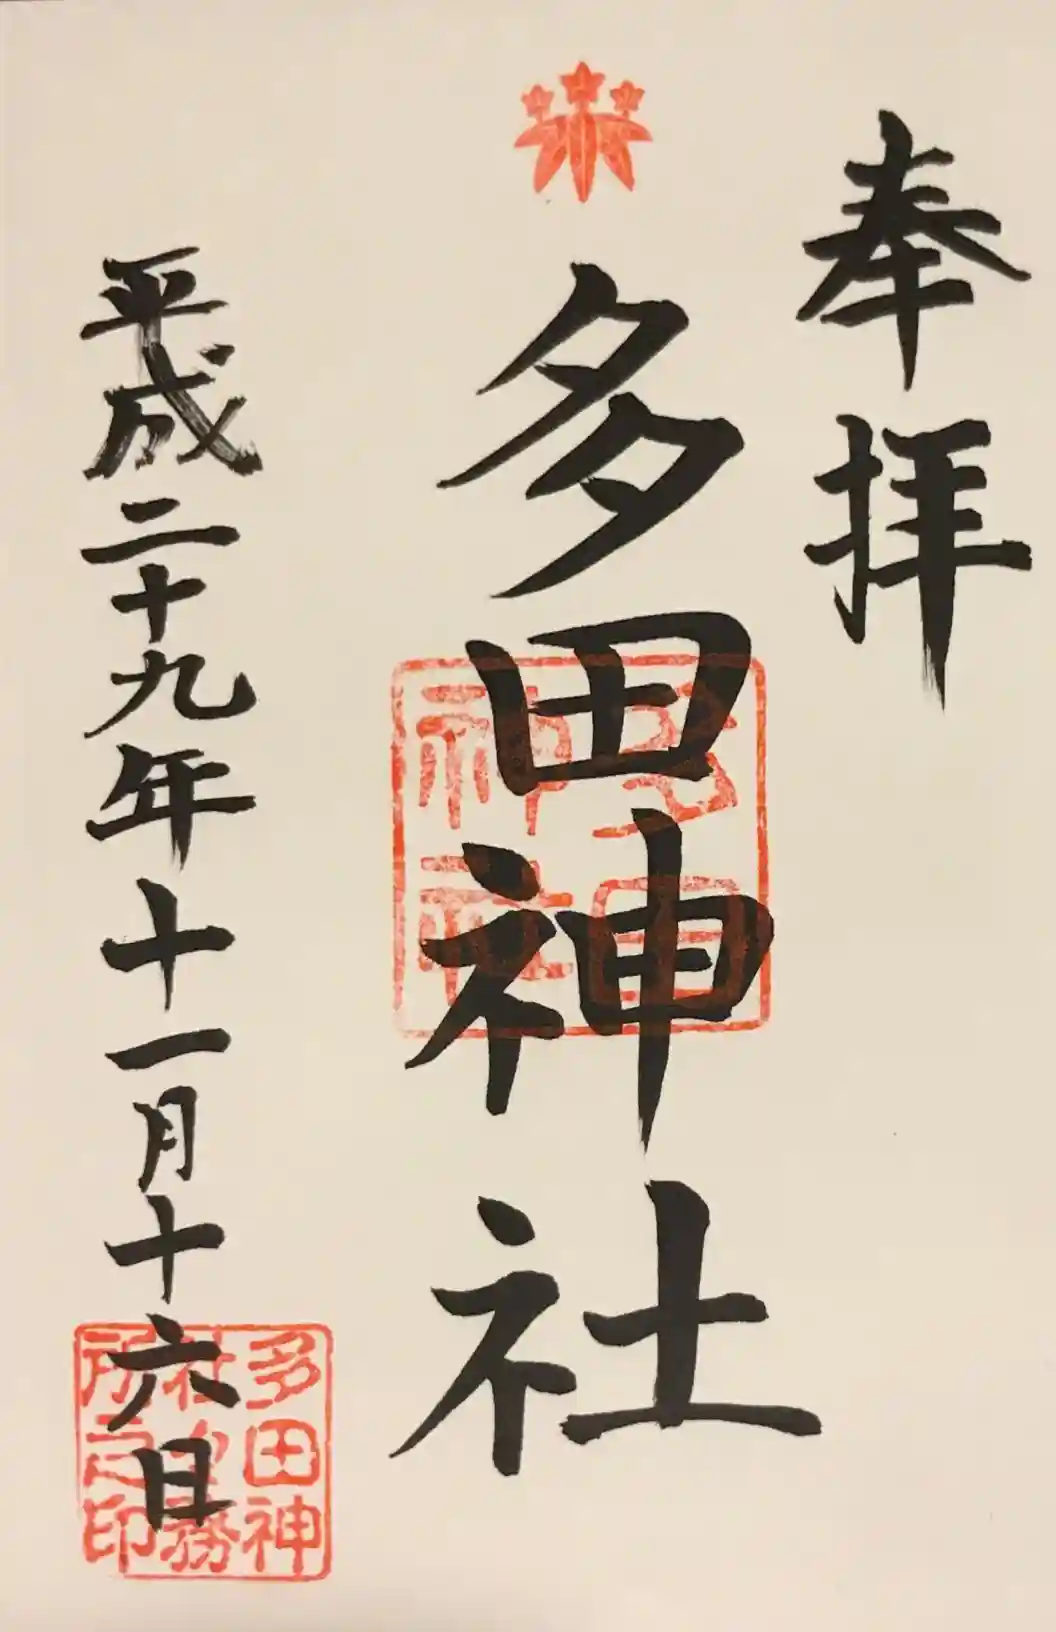 奉拝
多田神社
多田神社
平成二十九年十一月十六日
多田神社社務所之印